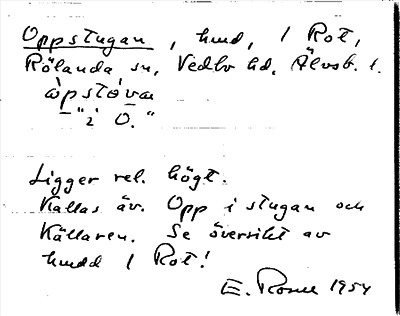 Oppstugan, hmd, 1 Rot,
Rölanda sn, Vedbo hd, Älvsb. l.
òpstòvan
– " i O. "
Ligger rel. högt.
Kallas äv. Opp i stugan och
Källaren. Se översikt av
hmdd 1 Rot!
E. 1954